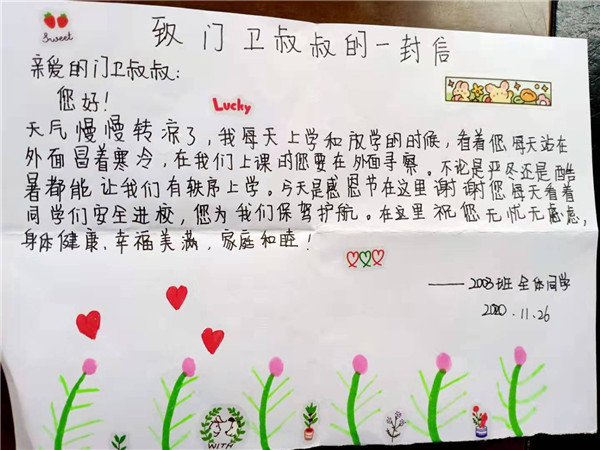 Sweet
致门卫叔叔的一封信
亲爱的门卫叔叔:
您好!
Lucky
天气慢慢转凉了,我每天上学和放学的时候,看着您每天站在
外面冒着寒冷,在我们上课时您要在外面寻察。不论是严冬还是酷
暑都能让我们有秩序上学。今天是感恩节在这里谢谢您每天看着
同学们安全进校,您为我们保驾护航。在这里祝您无忧无虑,
身体健康、幸福美满,家庭和睦!
——2003班全体同学
2020.11.26
WITH